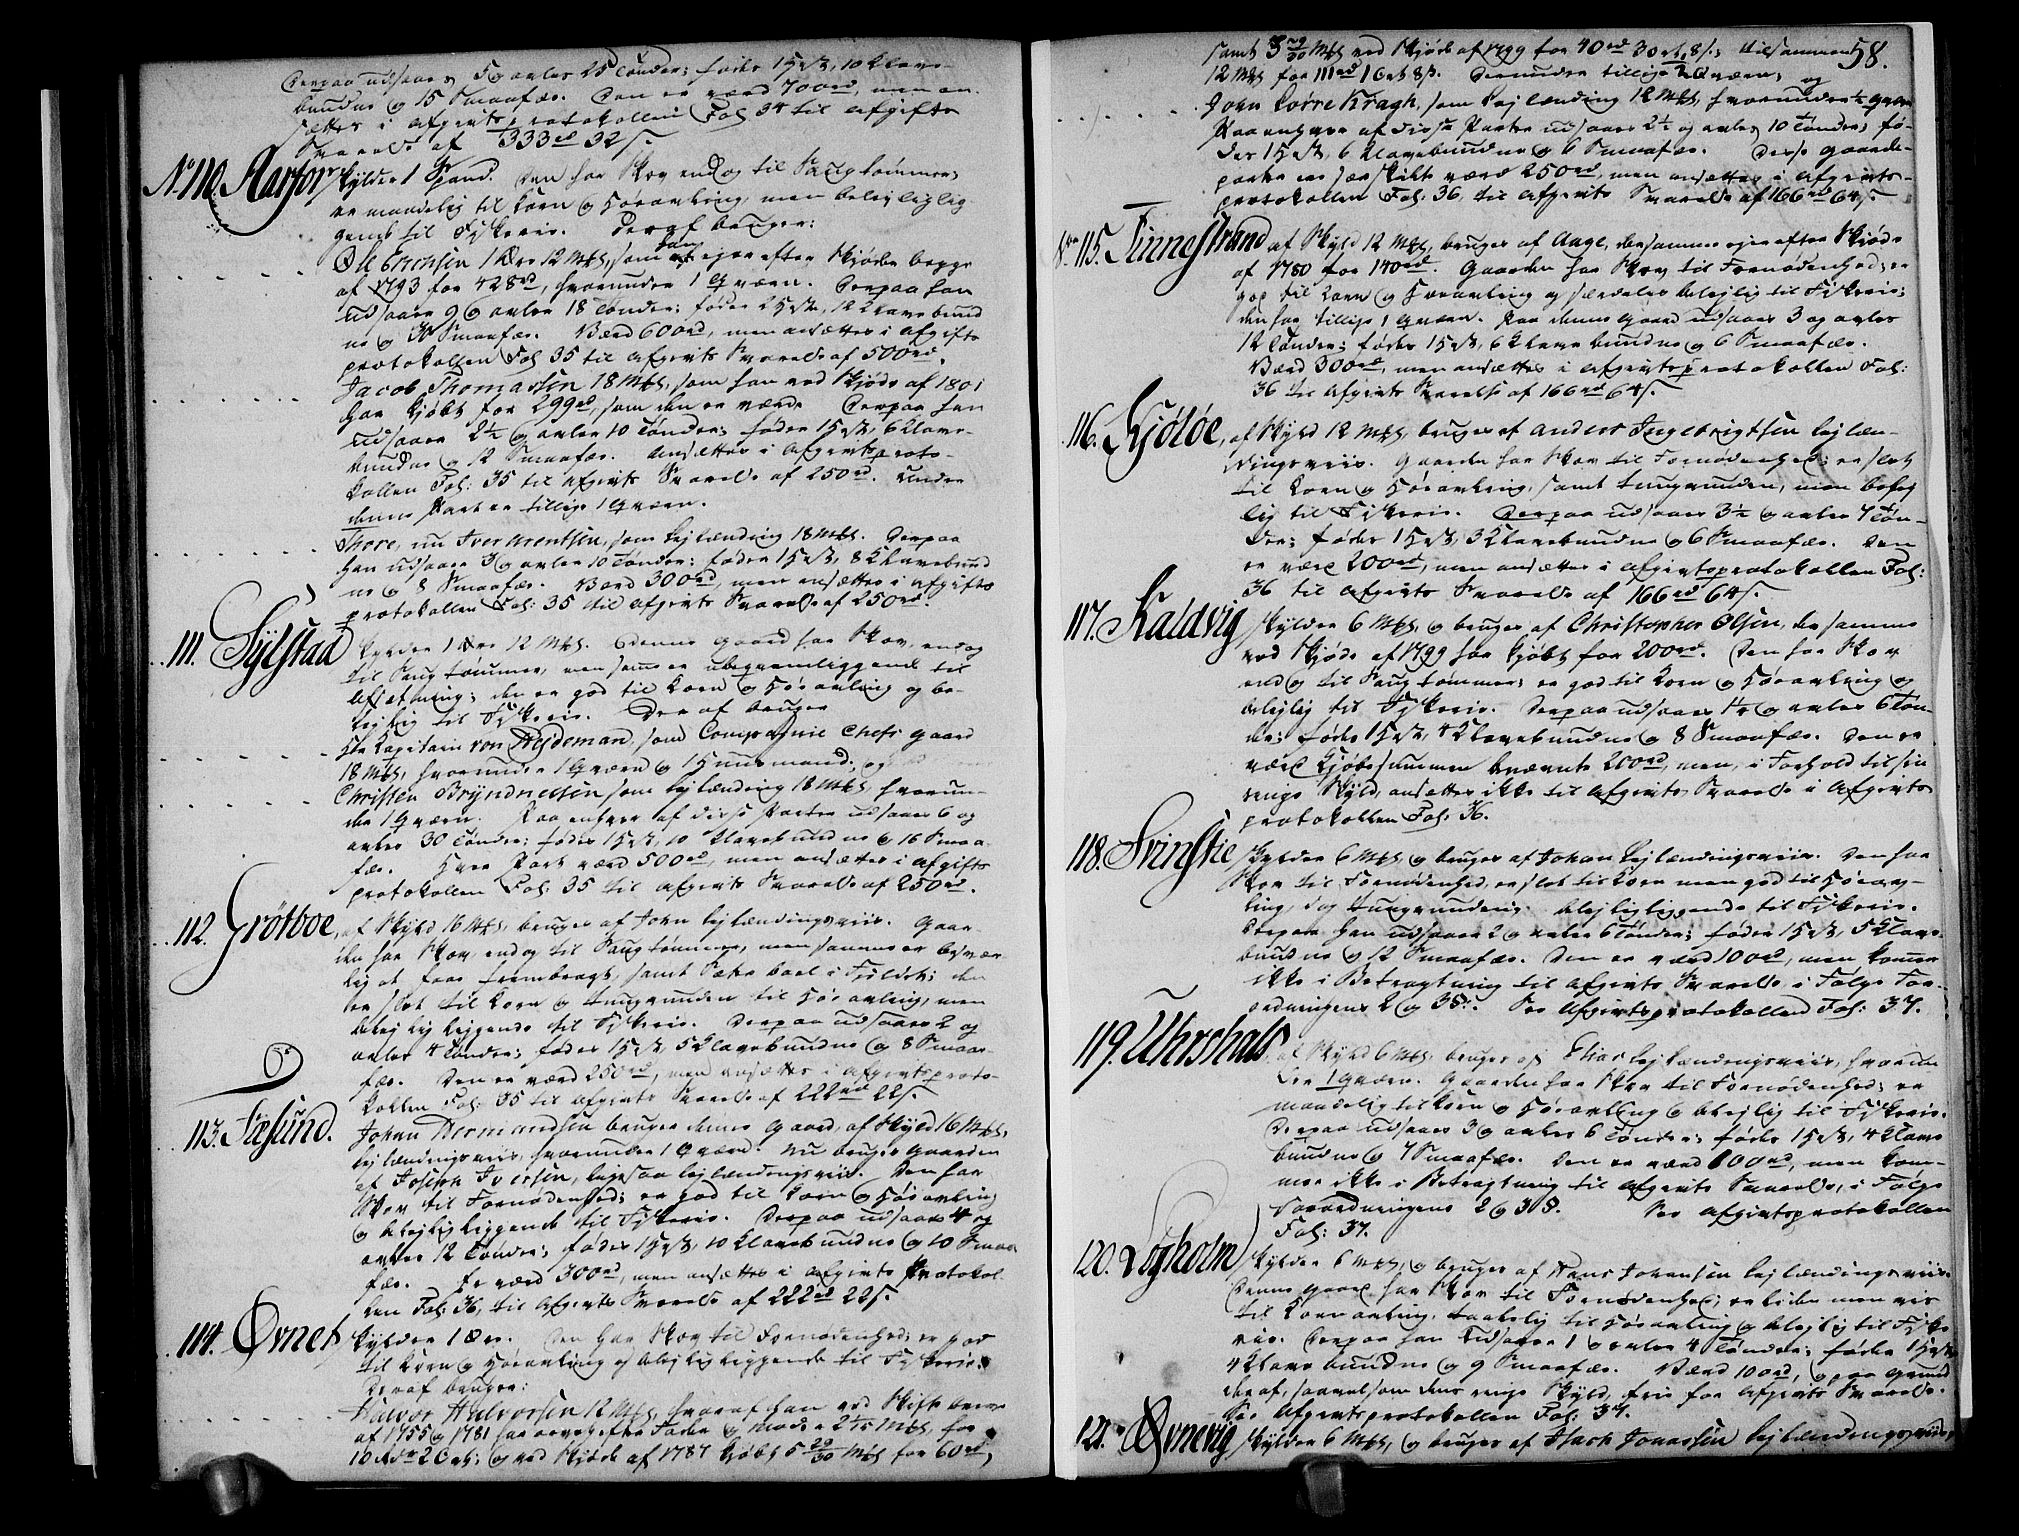 Derpaa udsaaes 5 og avles 25 Tønder; fødes 1 Hest, 10 Klave-
bundne og 15 Smaafæe. Den er værd 700 rd, men an-
sættes i Afgiftsprotokollen Fol. 34 til Afgifts
Svarelse af 333 rd 32 s.
No 110. Aarfor, skylder 1 Spand. Den har Skov endog til Saugtømmer;
er maadelig til Korn og Høeavling, men beleilig
til Fiskerie. Deraf bruger:
Ole Erichsen 1 Øre 12 Mkl, som han ejer efter Skjøder begge
af 1793 for 428 rd, hvorunder 1 Qværn. Derpaa han
udsaaer 9 og avler 18 Tønder; føder 2 Heste, 12 Klavebund
ne og Smaafæe. Værd 600 rd, men ansættes i Afgifts
protokollen Fol: 35 til Afgivts Svarelse af 500 rd.
Jacob Thomassen 18 Mkl, som han ved Skjøde af 1801
har kjøbt for 299 rd, som den er værd. Derpaa han
udsaaer 2½ og avler 10 Tønder; føder 1 Hest, 6 Klave-
bundne og 12 Smaafæe. Ansættes i Afgivtsproto-
kollen Fol: 35 til Afgivts Svarelse af 250 rd. Under
denne Part er tillige 1 Qværn.
Thore, nu Iver Arentsen, som Lejlænding 18 Mkl. Derpaa
han udsaaer 3 og avler 10 Tønder; føder 1 Hest, 8 Klavebund
ne og 8 Smaafæe. Værd 300 rd, men ansættes i Afgifts
protokollen Fol: 35 til Afgivts Svarelse af 250 rd.
111. Sylstad skylder 1 Øre 12 Mkl. Denne Gaard har Skov, endog
til Saugtømmer, men samme er ubeqvemliggende til
Afsætning; den er god til Korn og Høeavling og be-
lejlig til Fiskerie. Deraf bruger
Hr Kapitain von Krydeman, som Compagnie Chefs Gaard
18 Mkl, hvorunder 1 Qværn og 1 Huusmand; og
Christen Bryndnelsen som Lejlænding 18 Mkl, hvorun-
der 1 Qværn. Paa enhver af disse Parter udsaaes 6 og
avles 30 Tønder; fødes 1 Hest, 10 Klavebundne og 16 Smaa-
fæe. Hver Part værd 500 rd, men ansættes i Afgifts
protokollen Fol: 35 til Afgivts Svarelse af 250 rd.
112. Grøtboe, af Skyld 16 Mkl, bruges af John Lejlændingsviis. Gaar-
den har Skov, endog til Saugtømmer, men samme er besvær-
lig at faae frembragt, samt Sæter boel i Fjeldet; den
er slet til Korn og tungvunden til Høeavling, men
belejligliggende til Fiskerie. Derpaa udsaaes 2 og
avles 4 Tønder; fødes 1 Hest, 5 Klavebundne og 8 Smaa-
fæe. Den er værd 250 rd, men ansættes i Afgivtsproto-
kollen Fol: 35 til Afgivts Svarelse af 222 rd 22 s.
113. Fæsund. Johan Normandsen bruger denne Gaard, af Skyld 16 Mkl,
lejlændingsviis, hvorunder 1 Qværn. Nu bruges Gaarden
af Joseph Iversen, ligesaa lejlændingsviis. Den har
Skov til Fornødenhed; er god til Korn og Høeavling
og belejligliggende til Fiskerie. Derpaa udsaaes 4 og
avles 12 Tønder; fødes 1 Hest, 10 Klavebundne og 10 Smaa
fæe. Er værd 300 rd, men ansættes i Afgivts Protokol-
len Fol: 36, til Afgivts Svarelse af 222 rd 22 s.
114. Ørnet skylder 1 Øre. Den har Skov til Fornødenhed; er god
til Korn og Høeavling og belejligliggende til Fiskerie.
Deraf bruger:
Halvor Halvorsen 12 Mkl, hvoraf han ved Skifte breve
af 1755 og 1781 har arvet efter Fader og Moder Mkl, for
10 rdr 2 Ort; og ved Skjøde af 1787 kjøbt 5 29/30 Mkl for 60 rd,
58.
samt 3 29/30 Mkl ved Skjøde af 1799 for 40 rd 3 Ort 8 s; tilsammen
12 Mkl for 111 rd 1 Ort 8 s. Derunder tillige ½ Qværn; og
John Torre Kragh, som Lejlænding 12 Mkl, hvorunder ½ Qværn
Paa enhver af disse Parter udsaaes 2½ og avles 10 Tønder; fø-
des 1 Hest, 6 Klavebundne og 6 Smaafæe. Disse Gaarde-
parter er særskilt værd 250 rd, men ansættes i Afgivts-
protokollen Fol: 36, til Afgivts Svarelse af 166 rd 64 s.
115. Finnestrand af Skyld 12 Mkl, bruges af Aage, der samme ejer efter Skjøde
af 1780 for 140 rd. Gaarden har Skov til Fornødenhed; er
god til Korn og Høeavling og særdeles belejlig til Fiskerie;
den har tillige 1 Qværn. Paa denne Gaard udsaaes 3 og avles
12 Tønder; fødes 1 Hest, 6 Klavebundne og 6 Smaafæe.
Værd 300 rd, men ansættes i Afgivtsprotokollen Fol:
36 til Afgivts Svarelse af 166 rd 64 s.
116. Kjøløe, af Skyld 12 Mkl, bruges af Anders Ingebrigtsen lejlæn-
dingsviis. Gaarden har Skov til Fornødenhed; er slet
til Korn og Høeavling, samt tungvunden, men belej
lig til Fiskerie. Derpaa udsaaes 3½ og avles 7 Tøn-
der; fødes 1 Hest, 3 Klavebundne og 6 Smaafæe. Den
er værd 200 rd, men ansættes i Afgivtsprotokollen Fol:
36 til Afgivts Svarelse af 166 rd 64 s.
117. Kaldvig skylder 6 Mkl, og bruges af Christopher Olsen, der samme
ved Skjøde af 1799 har kjøbt for 200 rd. Den har Skov
endog til Saugtømmer; er god til Korn og Høeavling og
belejlig til Fiskerie. Derpaa udsaaes 1½ og avles 6 Tøn-
der; fødes 1 Hest, 4 Klavebundne og 8 Smaafæe. Den er
værd Kjøbesummen bemeldte 200 rd, men, i Forhold til sin
ringe Skyld, ansættes ikke til Afgivts Svarelse i Afgivts
protokollen Fol: 36.
118. Svinstie skylder 6 Mkl og bruges af Johan Lejlændingsviis. Den har
Skov til Fornødenhed, er slet til Korn men god til Høeav-
ling, dog tungvunden. Belejligliggende til Fiskerie.
Derpaa han udsaaer 2 og avler 6 Tønder; føder 1 Hest, 5 Klave-
bundne og 12 Smaafæe. Den er værd 100 rd, men kommer
ikke i Betragtning til Afgivts Svarelse, i Følge For-
ordningens 2 og 3 §. See Afgivtsprotokollen Fol: 37.
119. Uhrshals, af Skyld 6 Mkl, bruges af Elias lejlændingsviis, hvorun
der 1 Qværn. Gaarden har Skov til Fornødenhed; er
maadelig til Korn og Høeavling og belejlig til Fiskerie.
Derpaa udsaaes 3 og avles 6 Tønder; fødes 1 Hest, 4 Klave
bundne og 7 Smaafæe. Den er værd 100 rd, men kom-
mer ikke i Betragtning til Afgivts Svarelse, i Følge
Forordningens 2 og 3 §. See Afgivtsprotokollen
Fol: 37.
120. Løgholm skylder 6 Mkl, og bruges af Hans Johansen lejlændingsviis.
Denne Gaard har Skov til Fornødenhed; er liden men vis
til Kornavling, taalelig til Høeavling og belejlig til Fiske
rie. Derpaa han udsaaer 1 og avler 4 Tønder; føder 1 Hest
4 Klavebundne og 9 Smaafæe. Værd 100 rd, og paa Grund
deraf, saavelsom dens ringe Skyld, frie for Afgivts Svarelse.
See Afgivtsprotokollen Fol: 37.
121. Ørnevig skylder 6 Mkl, og bruges af Isach Jonassen lejlændingsviis,